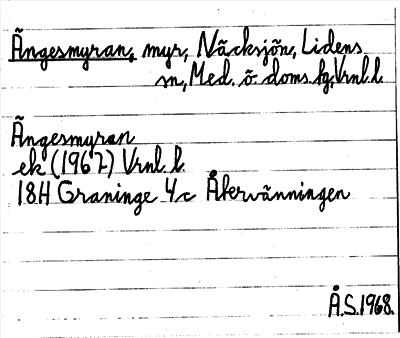 Ängesmyran, myr, Näcksjön, Lidens
sn, Med. ö. doms. fg, Vrnl. l.
Ängesmyran
ek (1967) Vrnl. l.
18H Graninge 4c Återvänningen
Å.S. 1968.